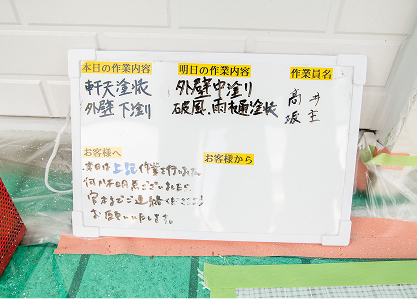 本日の作業内容
軒天塗装
外壁下塗り
明日の作業内容
外壁中塗り
破風、雨樋塗装
作業員名
高井
お客様へ
本日は上記作業を行いました
何か不明点ございましたら
までご連絡ください
お願いいたします。
お客様から